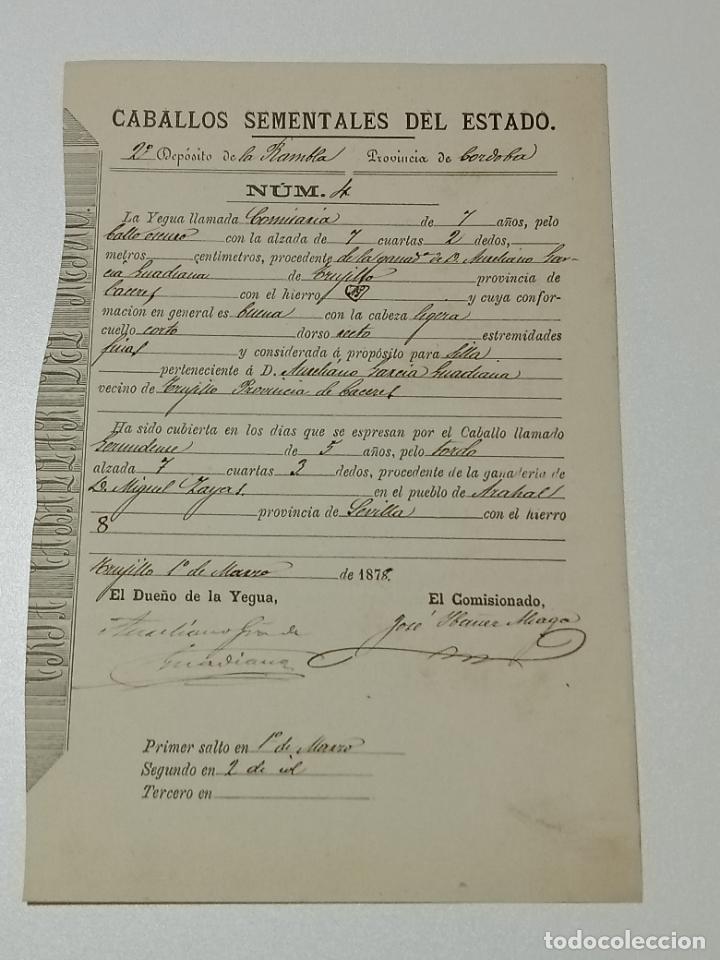 CABALLOS SEMENTALES DEL ESTADO.
2º Depósito de la Rambla Provincia de Cordoba
NÚM. 4
La Yegua llamada de 7 años, pelo
oscuro con la alzada de 7 cuartas 2 dedos,
metros centímetros, procedente de la ganadª de D. Aureliano Gar-
cia Guadiana de Trujillo provincia de
Caceres con el hierro y cuya confor-
macion en general es buena con la cabeza ligera
cuello corto dorso recto estremidades
finas y considerada á propósito para silla
perteneciente á D. Aureliano Garcia Guadiana
vecino de Trujillo Provincia de Caceres
Ha sido cubierta en los dias que se espresan por el Caballo llamado
Gerundense de 5 años, pelo tordo
alzada 7 cuartas 3 dedos, procedente de la ganaderia de
D. Miguel Zayas en el pueblo de Arahal
provincia de Sevilla con el hierro
8
Trujillo 1º de Marzo de 1878.
El Dueño de la Yegua, El Comisionado,
Aureliano Gª de José Ibañez
Guadiana
Primer salto en 1º de Marzo
Segundo en 2 de id
Tercero en
CRIA CABALLAR DEL
todocoleccion
todocoleccion.net